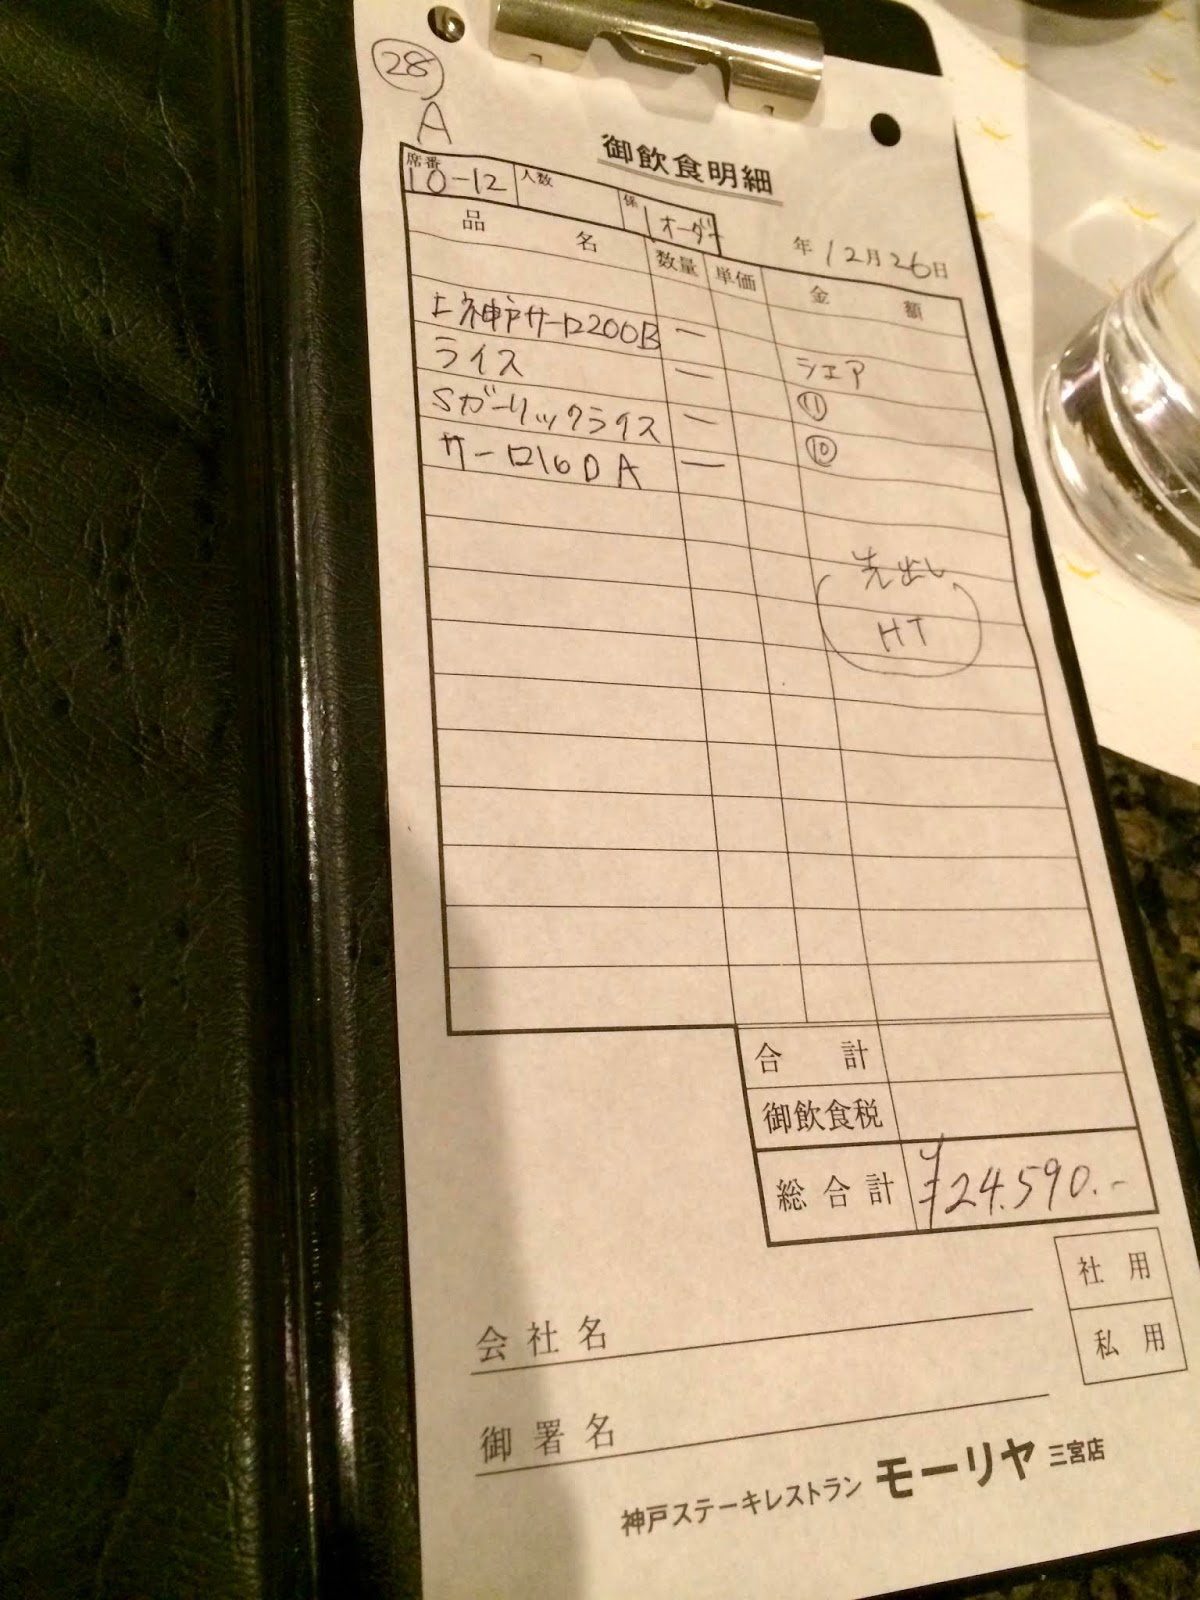 28
A
御飲食明細
席番 10-12 人数 係 1オーダー
年12月26日
品名 数量 単価 金額
上神戸サーロ200B 一 シェア
ライス 一 ⑪
Sガーリックライス 一 ⑩
サーロ160A 一
先出し
HT
合計
御飲食税
総合計 ¥24,590.-
社用
私用
会社名
御署名
神戸ステーキレストラン モーリヤ 三宮店